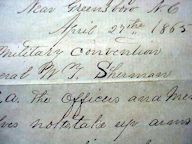 Near Greensboro N.C
April 27th 1865
Military Convention
eral W. T. Sherman
a. The Officers and Men
lves not to take up arms